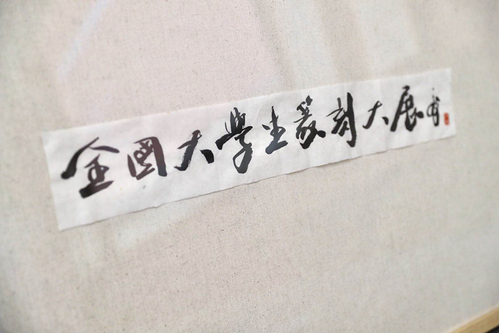 全國大學生篆刻大展